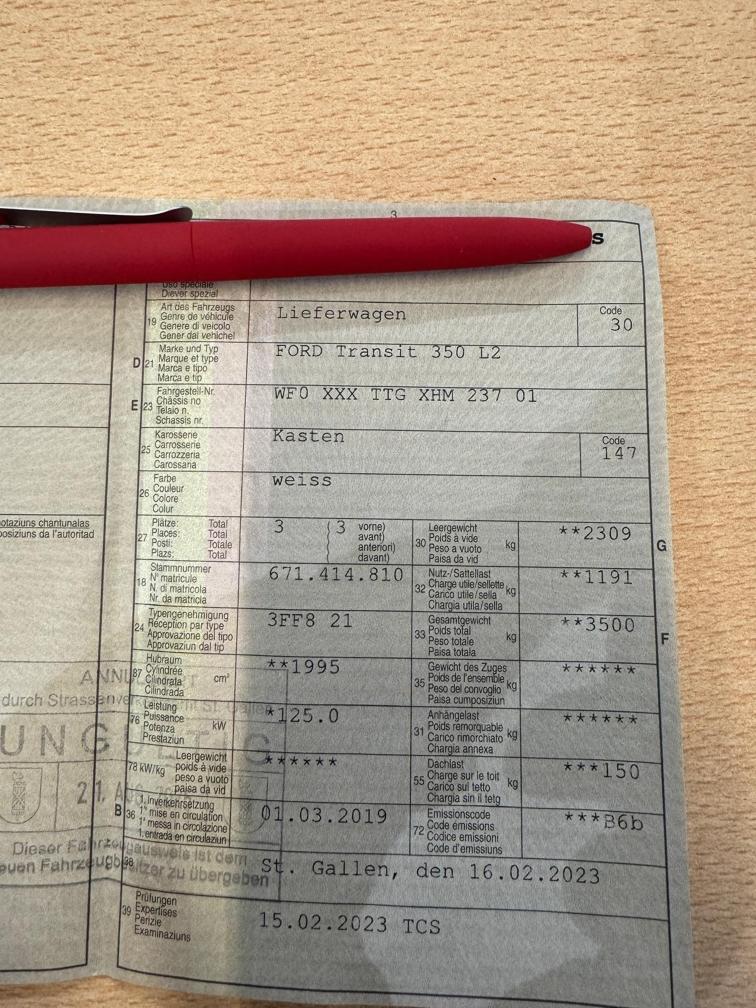 3
s
Uso speciale
Diever spezial
19 Art des Fahrzeugs
Genre de véhicule
Genere di veicolo
Gener dal vehichel
Lieferwagen
Code
30
D 21 Marke und Typ
Marque et type
Marca e tipo
Marca e tip
FORD Transit 350 L2
E 23 Fahrgestell-Nr.
Châssis no
Telaio n.
Schassis nr.
WF0 XXX TTG XHM 237 01
25 Karosserie
Carrosserie
Carrozzeria
Carossaria
Kasten
Code
147
26 Farbe
Couleur
Colore
Colur
weiss
otaziuns chantunalas
posiziuns da l'autoritad
27 Plätze: Total
Places: Total
Posti: Totale
Plazs: Total
3 (3 vorne)
avant)
anteriori)
davant)
30 Leergewicht
Poids à vide
Peso a vuoto
Paisa da vid
kg
**2309
G
18 Stammnummer
N° matricule
N. di matricola
Nr. da matricla
671.414.810
32 Nutz-/Sattellast
Charge utile/sellette
Carico utile/sella
Chargia utila/sella
kg
**1191
24 Typengenehmigung
Réception par type
Approvazione del tipo
Approvaziun dal tip
3FF8 21
33 Gesamtgewicht
Poids total
Peso totale
Paisa totala
kg
**3500
F
37 Hubraum
Cylindrée
Cilindrata
Cilindrada
cm³
**1995
35 Gewicht des Zuges
Poids de l'ensemble
Peso del convoglio
Paisa cumposiziun
kg
******
76 Leistung
Puissance
Potenza
Prestaziun
kW
*125.0
31 Anhängelast
Poids remorquable
Carico rimorchiato
Chargia annexa
kg
******
78 kW/kg Leergewicht
poids à vide
peso a vuoto
paisa da vid
******
55 Dachlast
Charge sur le toit
Carico sul tetto
Chargia sin il tetg
kg
***150
B 36 1. Inverkehrsetzung
1re mise en circulation
1a messa in circolazione
1. entrada en circulaziun
01.03.2019
72 Emissionscode
Code émissions
Codice emissioni
Code d'emissiuns
***B6b
durch Strassenver
St. Gallen
UNG
21. A
Dieser Fahrzeugausweis ist dem
neuen Fahrzeugbesitzer zu übergeben
38
St. Gallen, den 16.02.2023
39 Prüfungen
Expertises
Perizie
Examinaziuns
15.02.2023 TCS